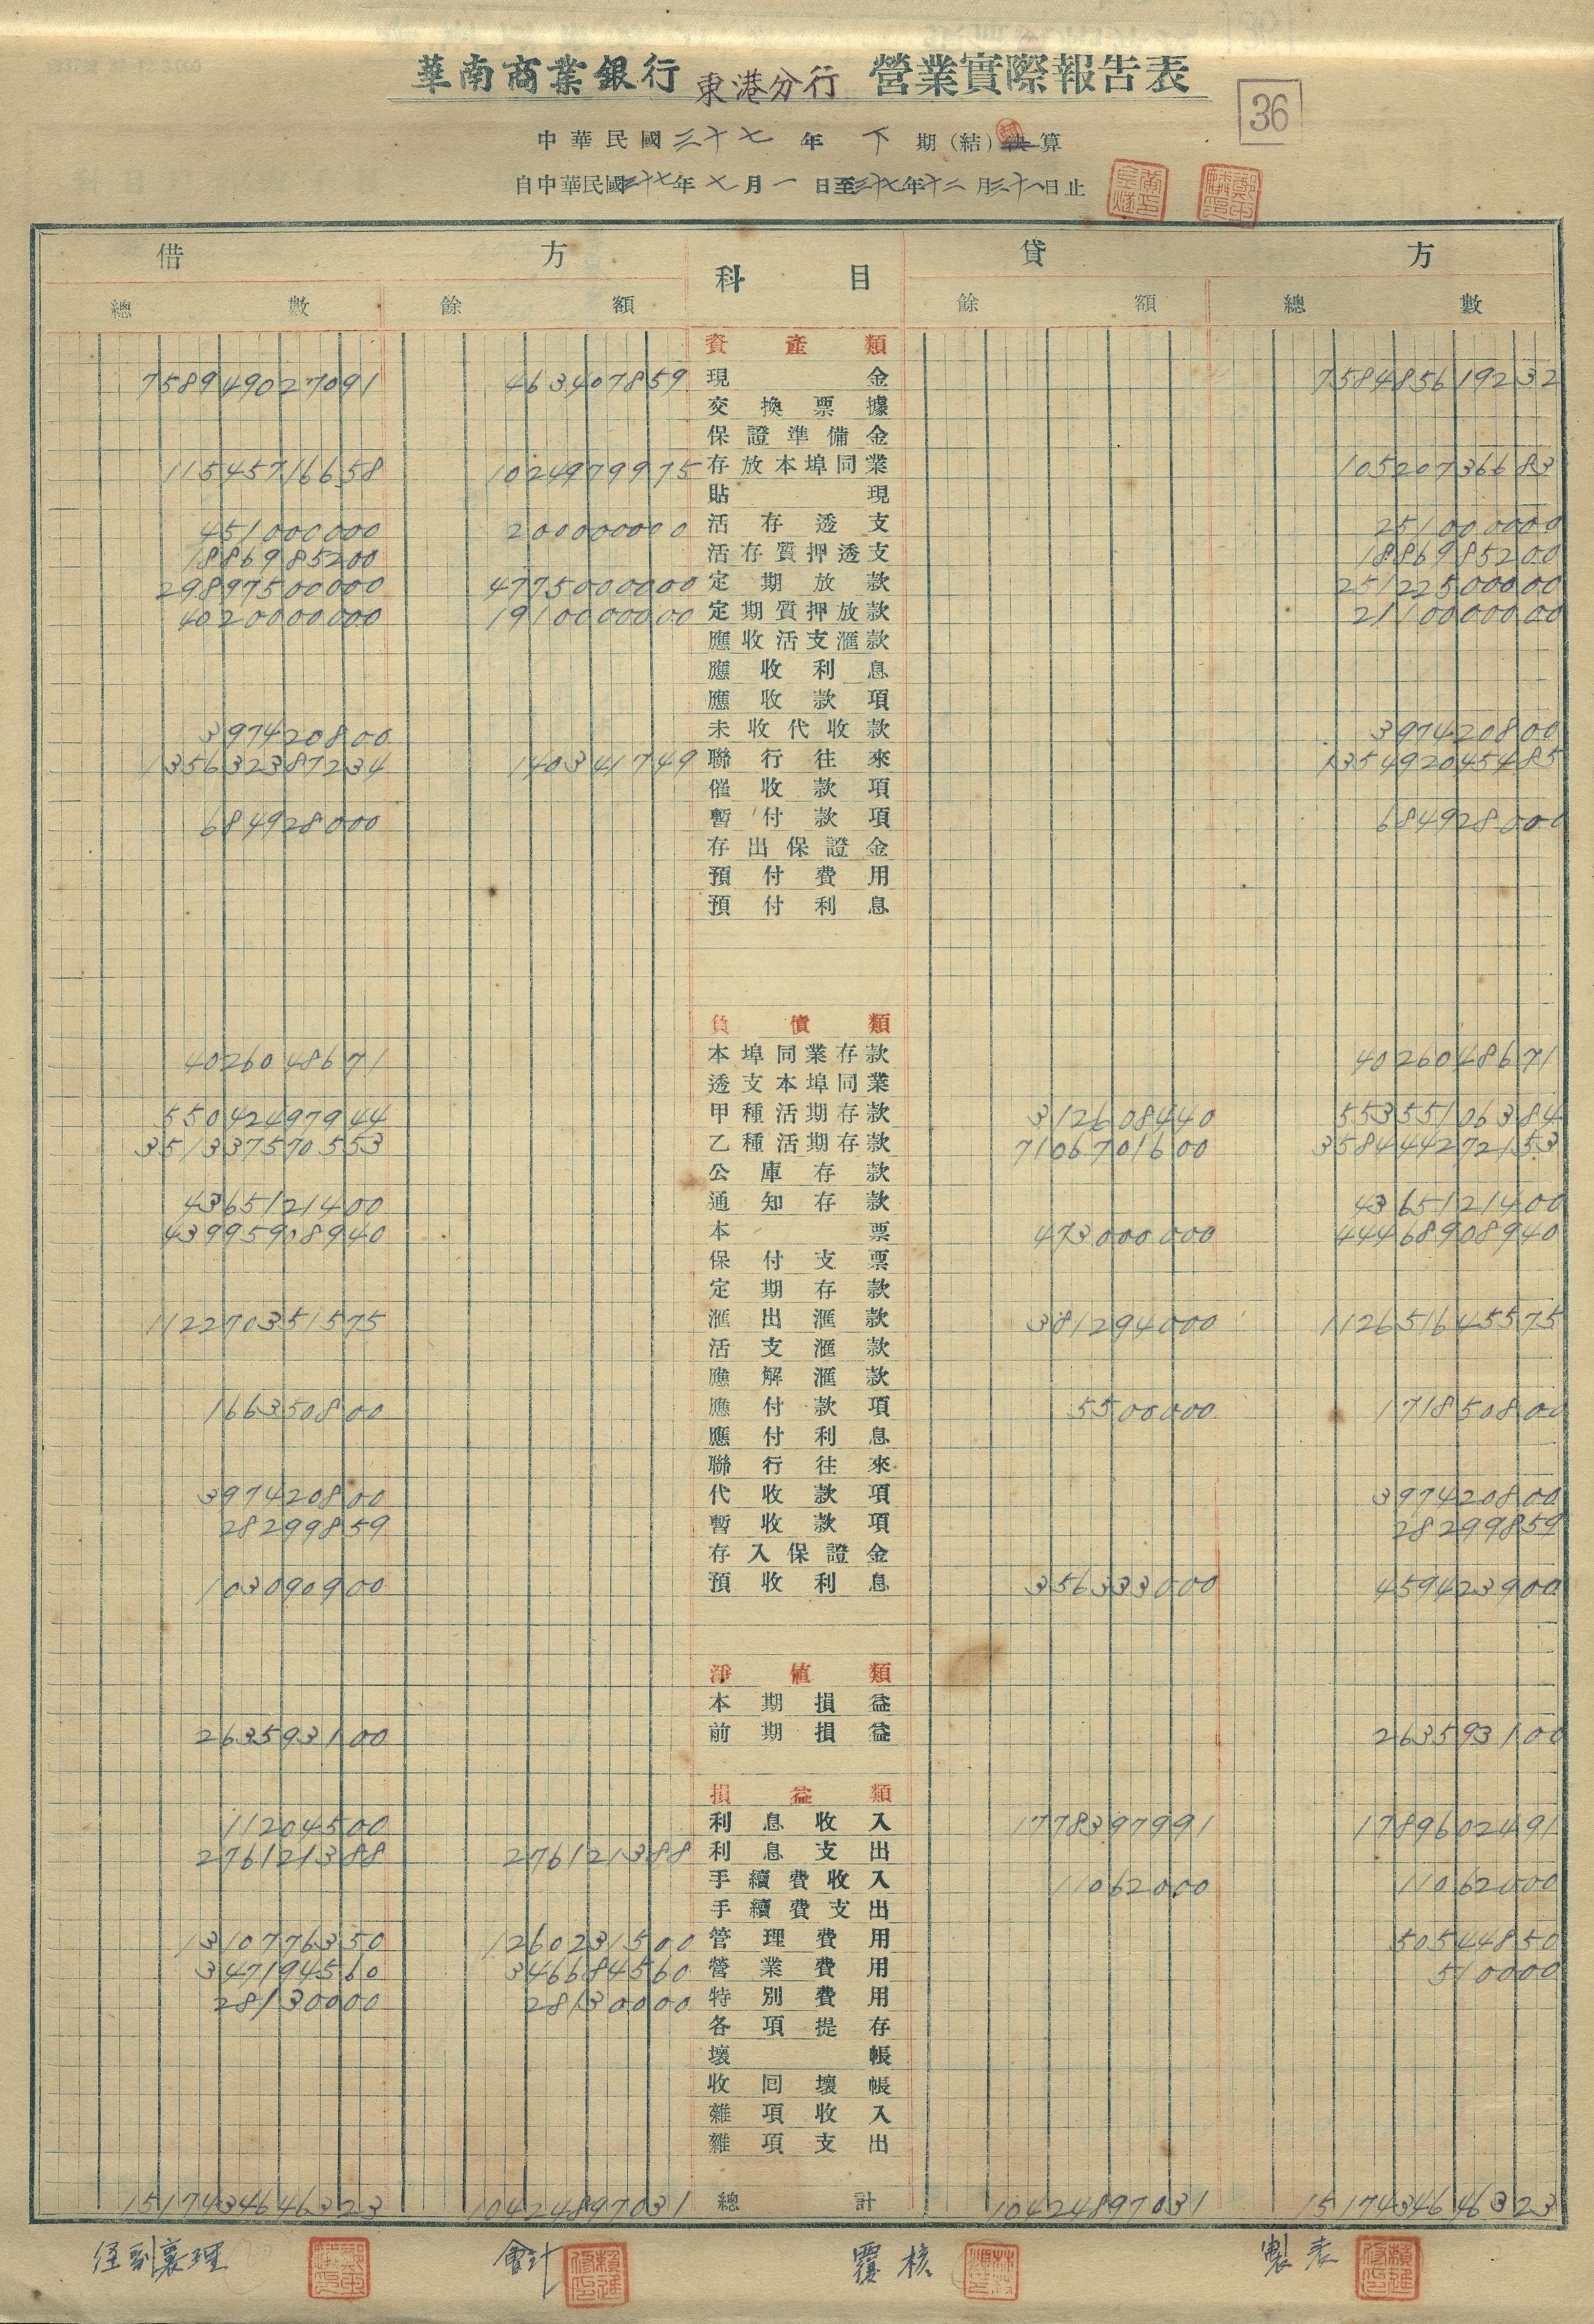 華南商業銀行 東港分行 營業實際報告表
36
中華民國三十七年下期(結)決算
自中華民國三十七年七月一日至三十七年十二月三十一日止
借方 科目 貸方
總數 餘額 餘額 總數
資產類
758949027091 463407859 現金 758485619232
交換票據
保證準備金
11545716658 1024979975 存放本埠同業 10520736683
貼現
451000000 200000000 活存透支 251000000
1886985200 活存質押透支 1886985200
29897500000 4775000000 定期放款 25122500000
4020000000 1910000000 定期質押放款 2110000000
應收活支滙款
應收利息
應收款項
397420800 未收代收款 397420800
135632387234 140341749 聯行往來 135492045485
催收款項
684928000 暫付款項 684928000
存出保證金
預付費用
預付利息
負債類
4026048671 本埠同業存款 4026048671
透支本埠同業
55042497944 甲種活期存款 312608440 55355106384
351337570553 乙種活期存款 7106701600 358444272153
公庫存款
4365121400 通知存款 4365121400
43995908940 本票 473000000 44468908940
保付支票
定期存款
112270351575 滙出滙款 381294000 112651645575
活支滙款
應解滙款
166350800 應付款項 5500000 171850800
應付利息
聯行往來
397420800 代收款項 397420800
28299859 暫收款項 28299859
存入保證金
103090900 預收利息 356333000 459423900
淨值類
本期損益
263593100 前期損益 263593100
損益類
11204500 利息收入 1778397991 1789602491
276121388 276121388 利息支出
手續費收入 11062000 11062000
手續費支出
1310776350 1260231500 管理費用 50544850
347194560 346684560 營業費用 510000
28130000 28130000 特別費用
各項提存
壞帳
收回壞帳
雜項收入
雜項支出
1517434646323 10424897031 總計 10424897031 1517434646323
經副襄理 會計 覆核 製表